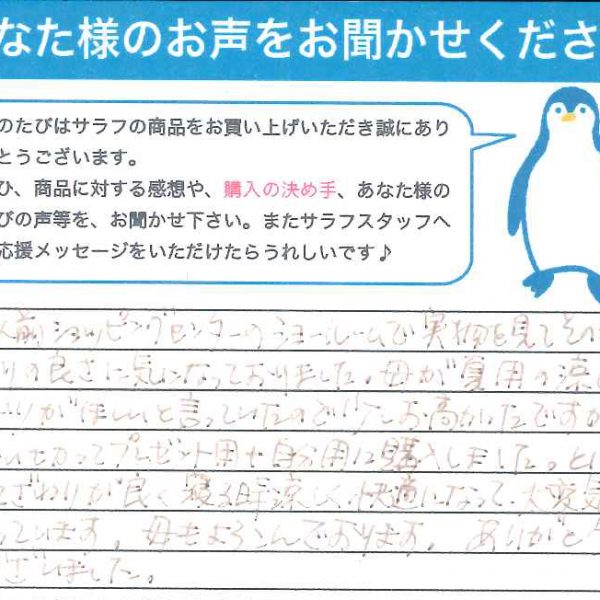 なた様のお声をお聞かせくださ
のたびはサラフの商品をお買い上げいただき誠にあり
とうございます。
ひ、商品に対する感想や、購入の決め手、あなた様の
びの声等を、お聞かせ下さい。またサラフスタッフへ
応援メッセージをいただけたらうれしいです♪
前ショッピングセンターのショールームで実物を見てその
りの良さに気になっておりました。母が夏用の涼し
が ほしいと言っていたので少しお高かったですが
思い切ってプレゼント用や自分用に購入しました。とて
ざわりが良く寝る時涼しく快適になって、大変気
っています。母もよろこんでおります。ありがと
ございました。